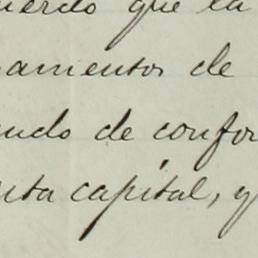 uerdo que la
amentos de
ndo de confor
nta capital, y